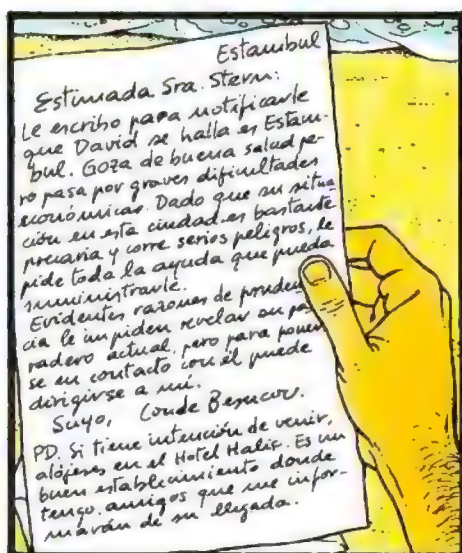 Estambul
Estimada Sra. Stern:
Le escribo para notificarle
que David se halla en Estam-
bul. Goza de buena salud pe-
ro pasa por graves dificultades
económicas. Dado que su situa
ción en esta ciudad es bastante
precaria y corre serios peligros, le
pide toda la ayuda que pueda
suministrarle.
Evidentes razones de pruden
cia le impiden revelar su pa
radero actual, pero para poner
se en contacto con él puede
dirigirse a mí.
Suyo, Conde
PD. Si tiene intención de venir,
alójese en el Hotel Halif. Es un
buen establecimiento donde
tengo amigos que me infor-
marán de su llegada.